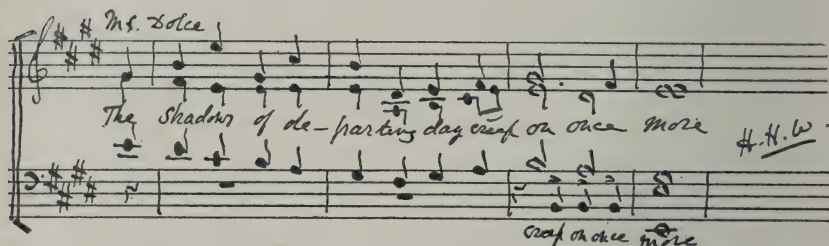 Ms. Dolce
The shadows of de-parting day creep on once more
H.H.W
creep on once more